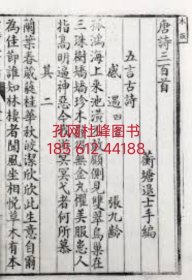 唐詩三百首
衡塘退士手編
五言古詩
感遇四
張九齡
孤鴻海上來池潢
顧側見雙翠鳥巢在
三珠樹矯矯珍木
得無金丸懼美服患人
指高明逼神惡今我
冥冥弋者何所慕
其二
蘭葉春葳蕤桂華秋皎潔欣欣此生意自爾
為佳節誰知林棲者聞風坐相悅草木有本
孔网社峰图书
185 612 44188